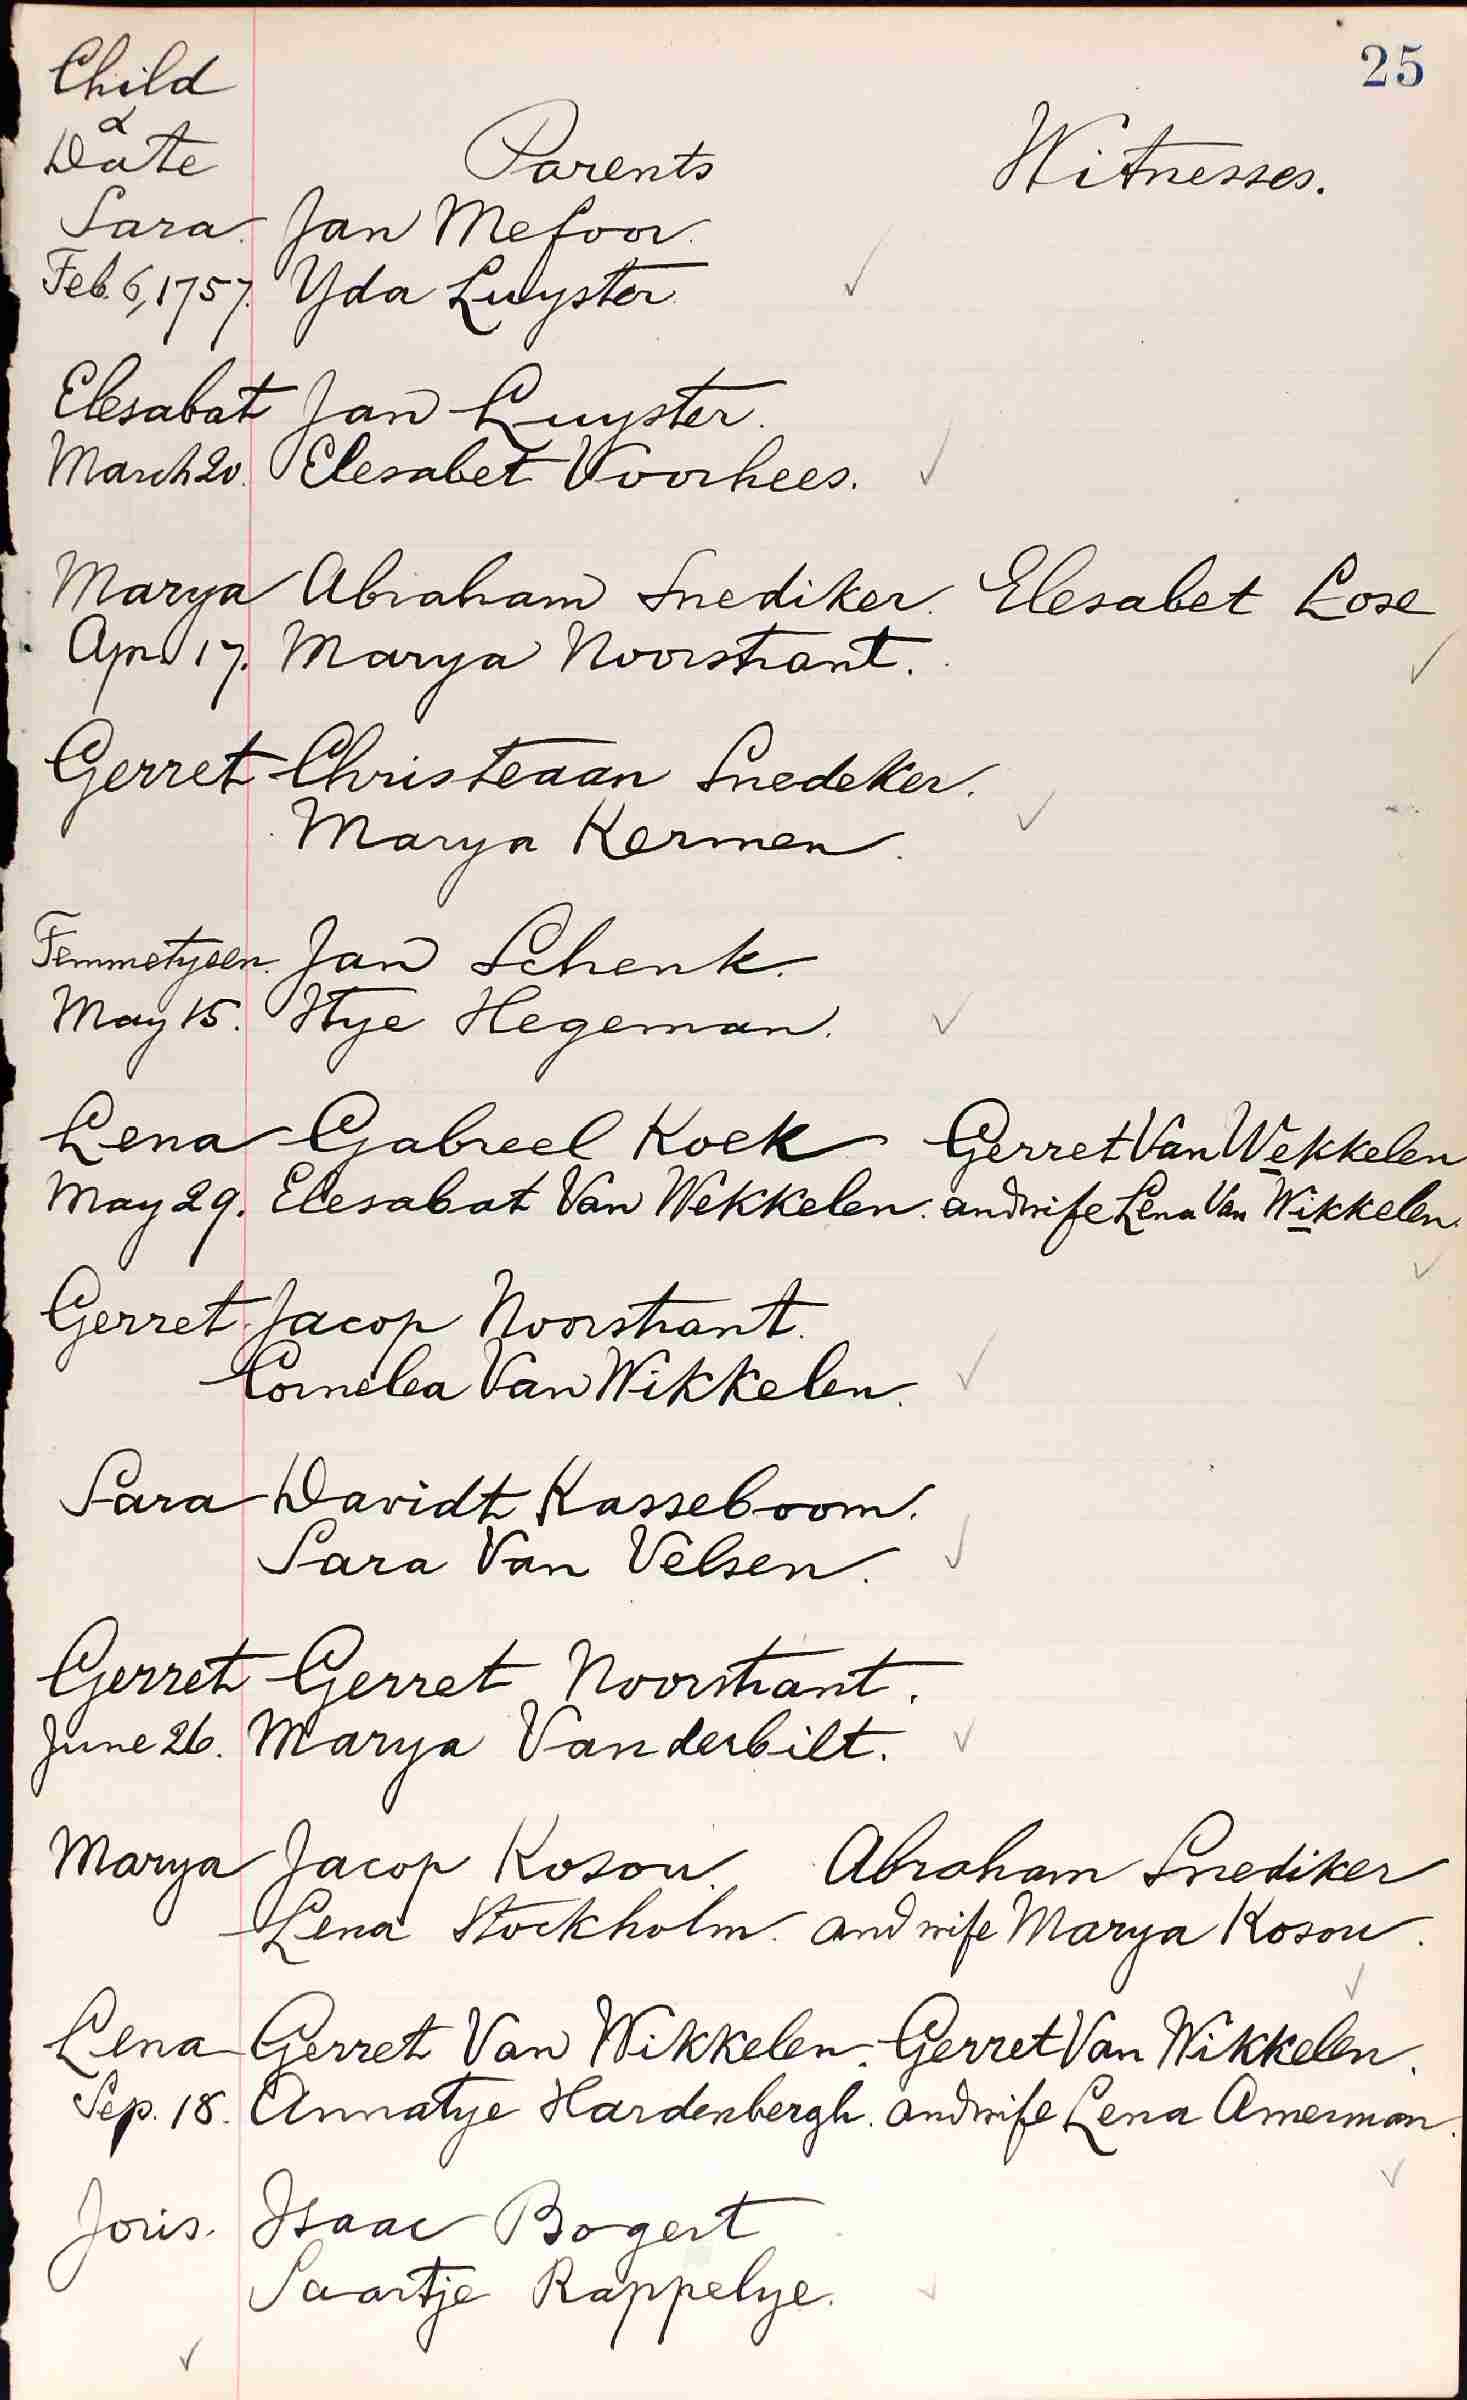 25
Child
&
Date Parents Witnesses.
Sara. Jan Mefoor.
Feb. 6, 1757. Yda Luyster.
Elesabat Jan Luyster.
March 20. Elesabet Voorhees.
Marya Abraham Snediker. Elesabet Lose
Apr. 17. Marya Noorstrant.
Gerret Christeaan Snedeker.
Marya Kermen.
Femmetyeen. Jan Schenk.
May 15. Itye Hegeman.
Lena Gabreel Koek Gerret Van Wekkelen
May 29. Elesabat Van Wekkelen. and wife Lena Van Wikkelen.
Gerret Jacop Noorstrant.
Cornelea Van Wikkelen.
Sara Davidt Kasseboom.
Sara Van Velsen.
Gerret Gerret Noorstrant.
June 26. Marya Vanderbilt.
Marya Jacop Kosou. Abraham Snediker
Lena Stockholm. and wife Marya Kosou.
Lena Gerret Van Wikkelen. Gerret Van Wikkelen.
Sep. 18. Annatye Hardenbergh. and wife Lena Amerman.
Joris. Isaac Bogert
Saartje Rappelye.